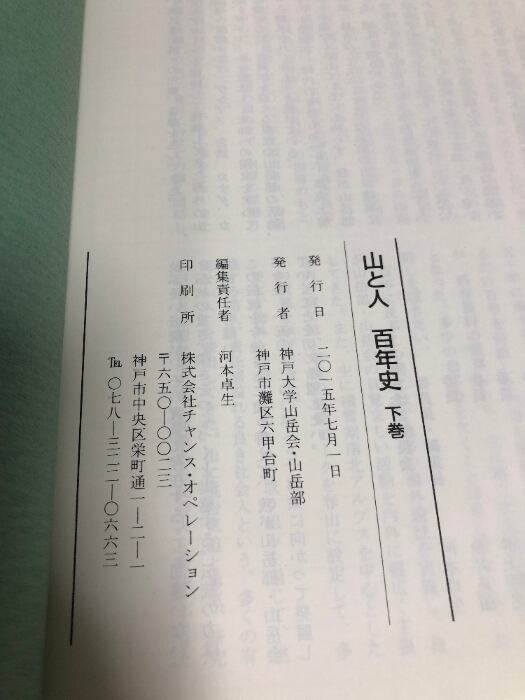 山と人 百年史 下巻
発行日 二〇一五年七月一日
発行者 神戸大学山岳会・山岳部
神戸市灘区六甲台町
編集責任者 河本卓生
印刷所 株式会社チャンス・オペレーション
〒六五〇―〇〇二三
神戸市中央区栄町通一―二―一
℡ 〇七八―三二二―〇六六三